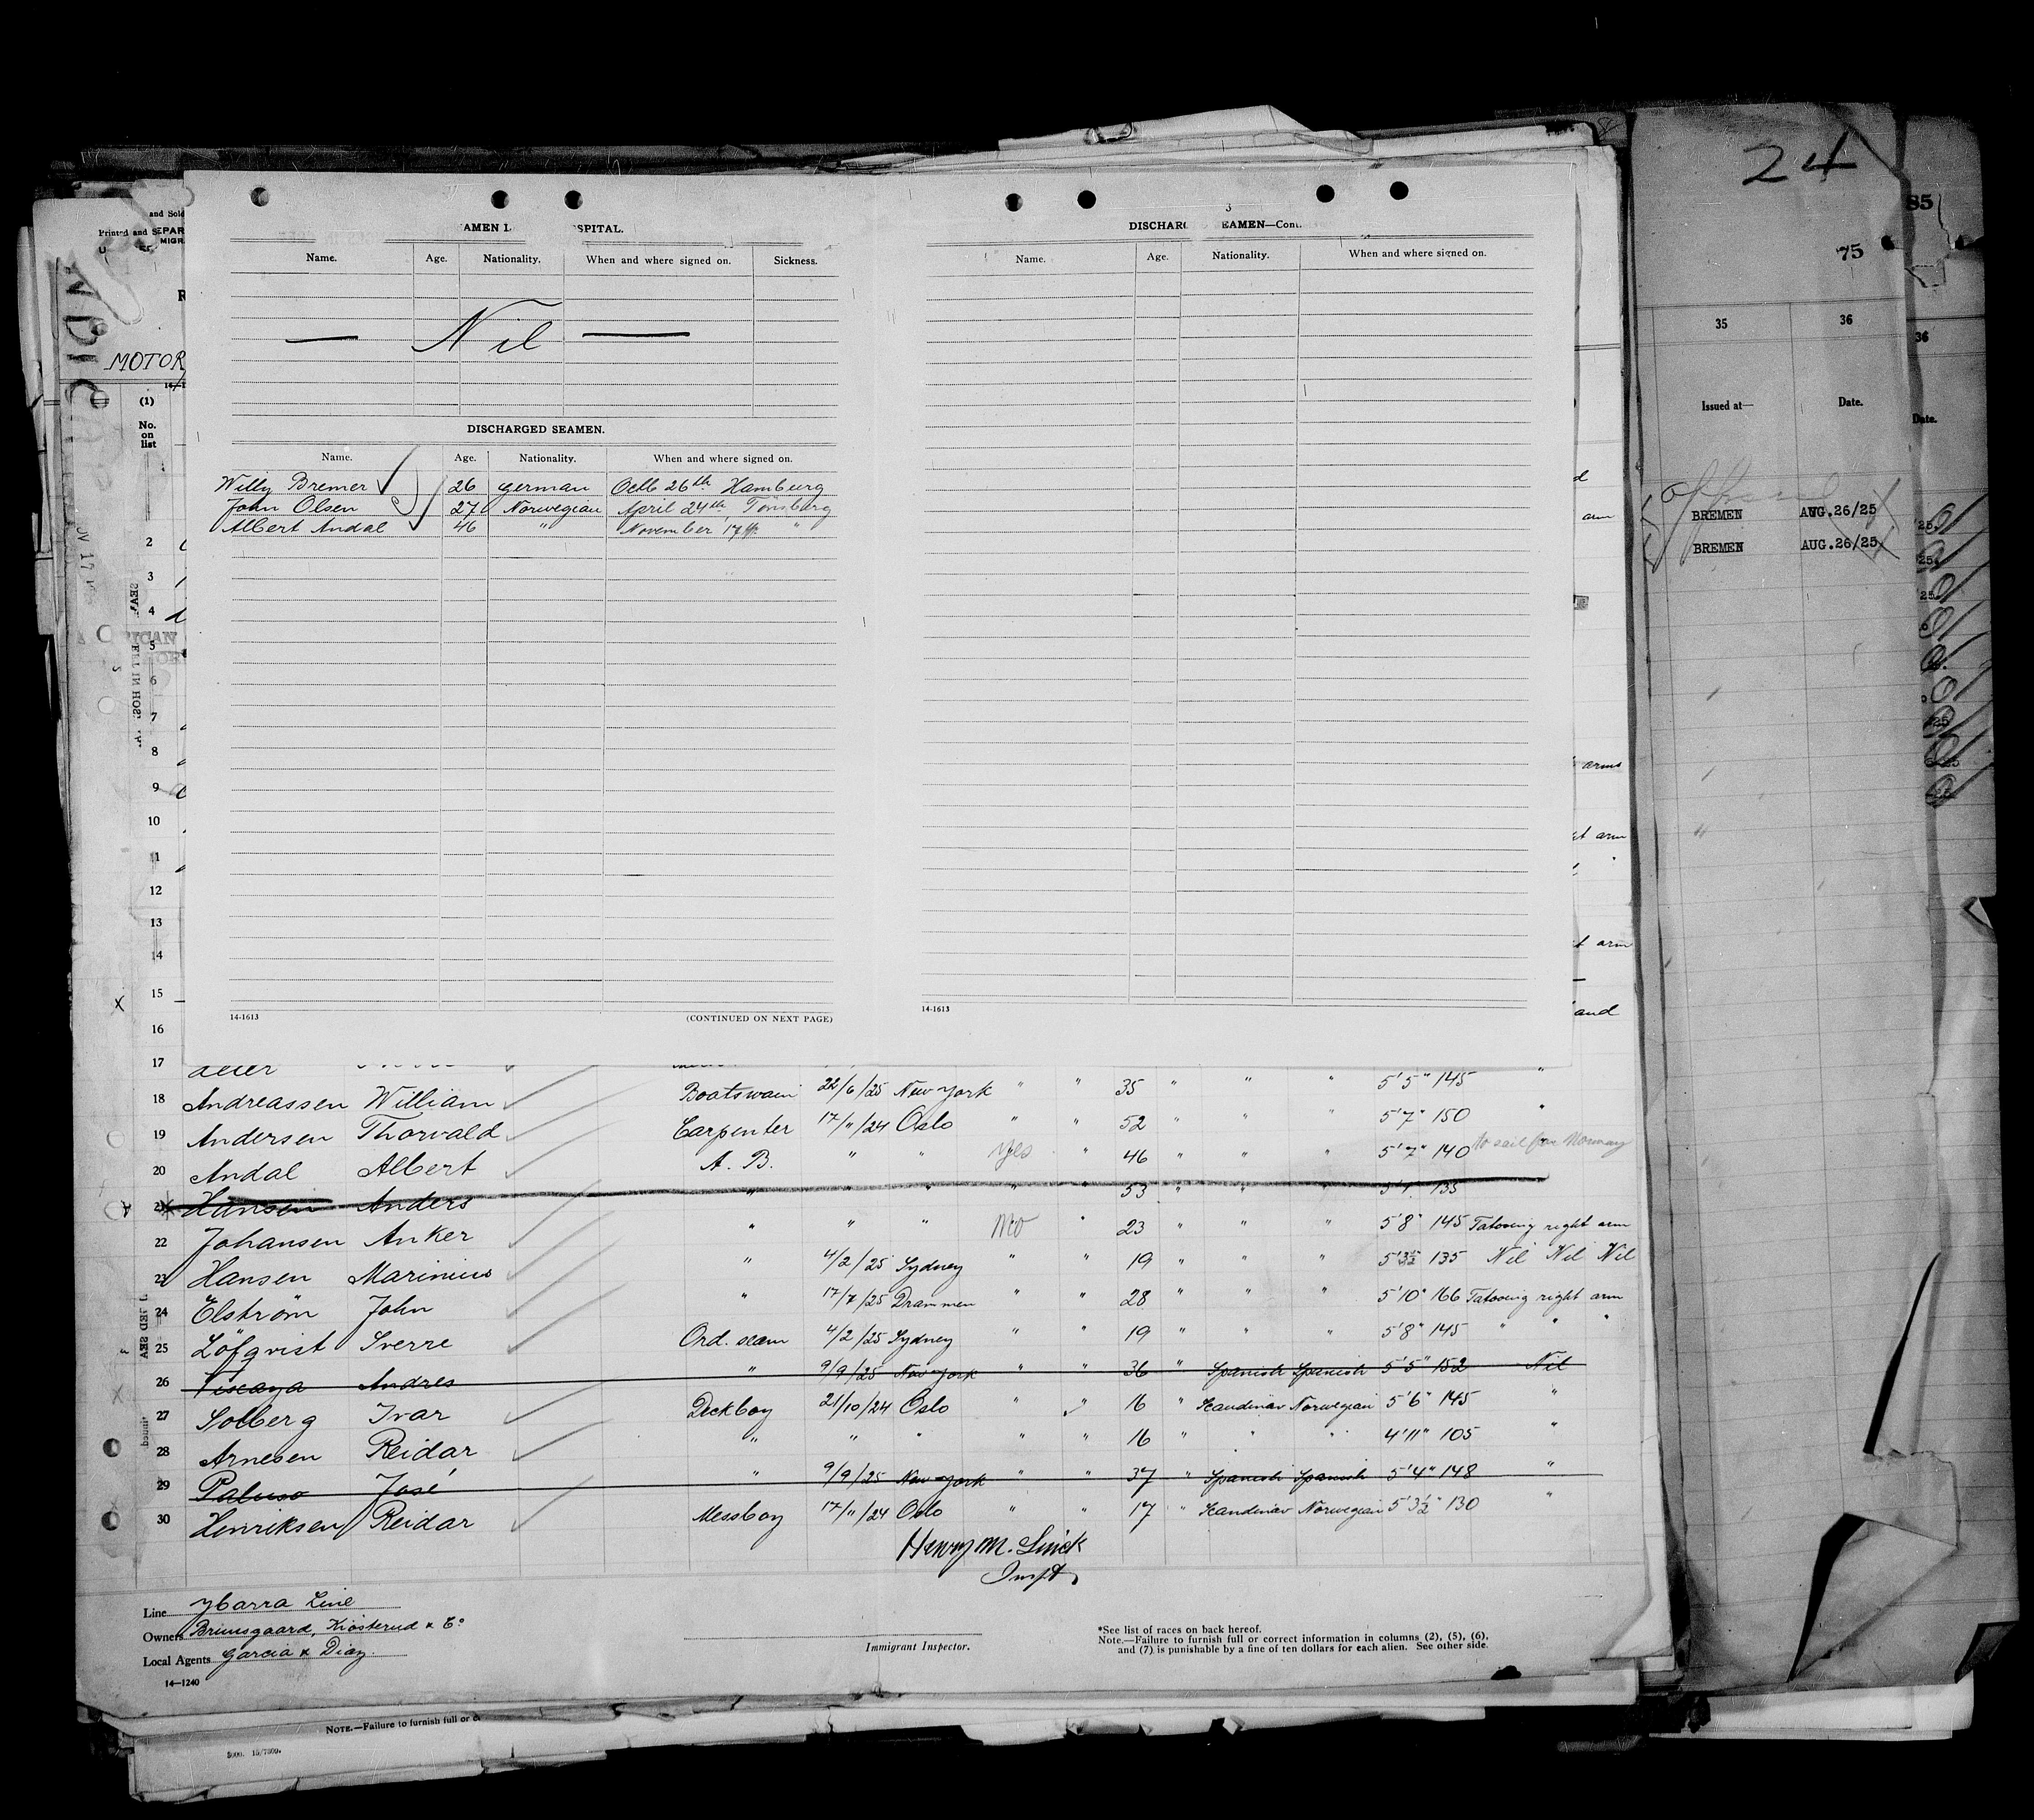 24
85
75
35 36
36
Issued at— Date.
Date.
BREMEN AUG.26/25
BREMEN AUG.26/25
and Sold
Printed and
MOTOR
(1)
No.
on
list
3
AMEN SPITAL.
Name. Age. Nationality. When and where signed on. Sickness.
— Nil —
DISCHARGED SEAMEN.
Name. Age. Nationality. When and where signed on.
Willy Bremer 26 german Octb 26th Hamburg
John Olsen 27 Norwegian April 24th Tönsberg
Albert Andal 46 " November 17th "
14-1613 (CONTINUED ON NEXT PAGE)
DISCHARG EAMEN—Cont.
Name. Age. Nationality. When and where signed on.
14-1613
arm
arms
arm
arm
and
2
3
4
5
6
7
8
9
10
11
12
13
14
15
16
17
18 Andreassen William Boatswain 22/6/25 New York " " 35 " " " 5'5" 145 "
19 Andersen Thorvald Carpenter 17/11/24 Oslo " " 52 " " " 5'7" 150 "
20 Andal Albert A. B. " " Yes " 46 " " " 5'7" 140 to sail for Norway
21 Hansen Anders " " " " " 53 " " " 135
22 Johansen Anker " " " No " 23 " " " 5'8" 145 Tatooing right arm
23 Hansen Marinius " 4/2/25 Sydney " " 19 " " " 135 Nil Nil Nil
24 Elström John " 17/7/25 Drammen " " 28 " " " 5'10" 166 Tatooing right arm
25 Löfqvist Sverre Ord. seam 4/2/25 Sydney " " 19 " " " 5'8" 145 " " "
26 Viscaya Andres " 9/9/25 New York " " 36 " Spanish Spanish 5'5" 152 Nil
27 Solberg Ivar Deckboy 21/10/24 Oslo " " 16 " Scandinav Norwegian 5'6" 145 "
28 Arnesen Reidar " " " " " 16 " " " 4'11" 105 "
29 José " 9/9/25 New York " " 37 " Spanish Spanish 5'4" 148 "
30 Henriksen Reidar Messboy 17/11/24 Oslo " " 17 " Scandinav Norwegian 5'3½" 130 "
Henry M.
Inspt
Line Ybarra Line
Owners Bruusgaard, Kiösterud & Co
Local Agents Garcia & Diaz
14—1240
Immigrant Inspector.
*See list of races on back hereof.
Note.—Failure to furnish full or correct information in columns (2), (5), (6),
and (7) is punishable by a fine of ten dollars for each alien. See other side.
NOTE.—Failure to furnish full or